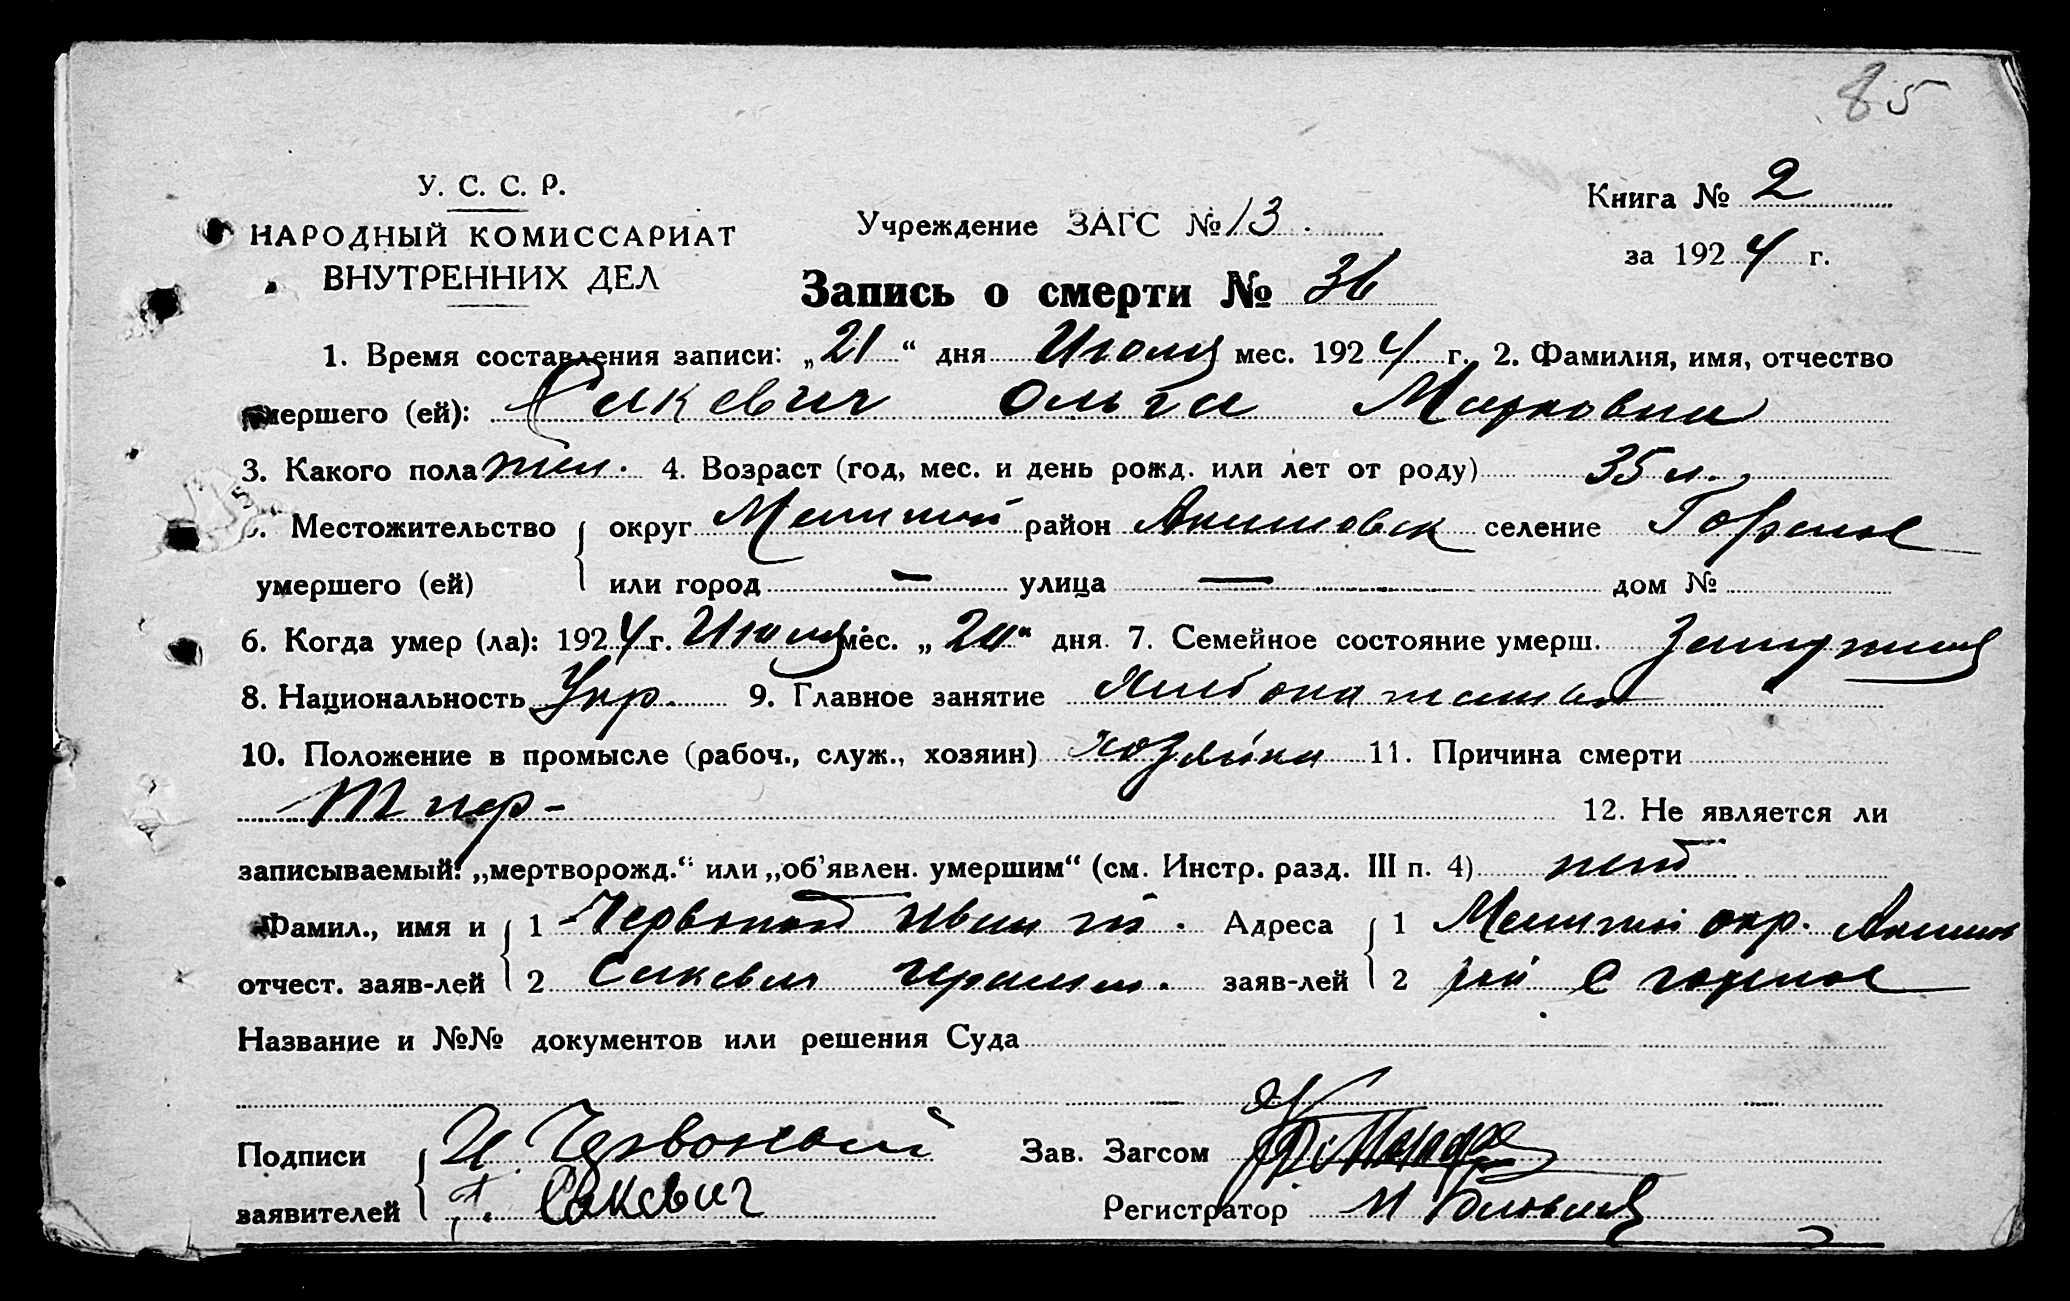 85
У. С. С. Р.
НАРОДНЫЙ КОМИССАРИАТ
ВНУТРЕННИХ ДЕЛ
Учреждение ЗАГС № 13.
Книга № 2
за 1924 г.
Запись о смерти № 36
1. Время составления записи: „21“ дня Июля мес. 1924 г. 2. Фамилия, имя, отчество
умершего (ей): Сакевич Ольга Марковна
3. Какого пола жен. 4. Возраст (год, мес. и день рожд. или лет от роду) 35 л.
5. Местожительство округ район Акимовск селение Горелое
умершего (ей) или город — улица — дом №
6. Когда умер (ла): 1924 г. Июля мес. „20“ дня 7. Семейное состояние умерш. Замужняя
8. Национальность Укр. 9. Главное занятие
10. Положение в промысле (рабоч., служ., хозяин) хозяйка 11. Причина смерти
12. Не является ли
записываемый: „мертворожд.“ или „об'явлен. умершим“ (см. Инстр. разд. III п. 4) нет
Фамил., имя и 1 Иван Адреса 1 окр. Акимов
отчест. заяв-лей 2 Сакевич заяв-лей 2 с Горелое
Название и №№ документов или решения Суда
Подписи И. Червоный Зав. Загсом
заявителей Сакевич Регистратор И